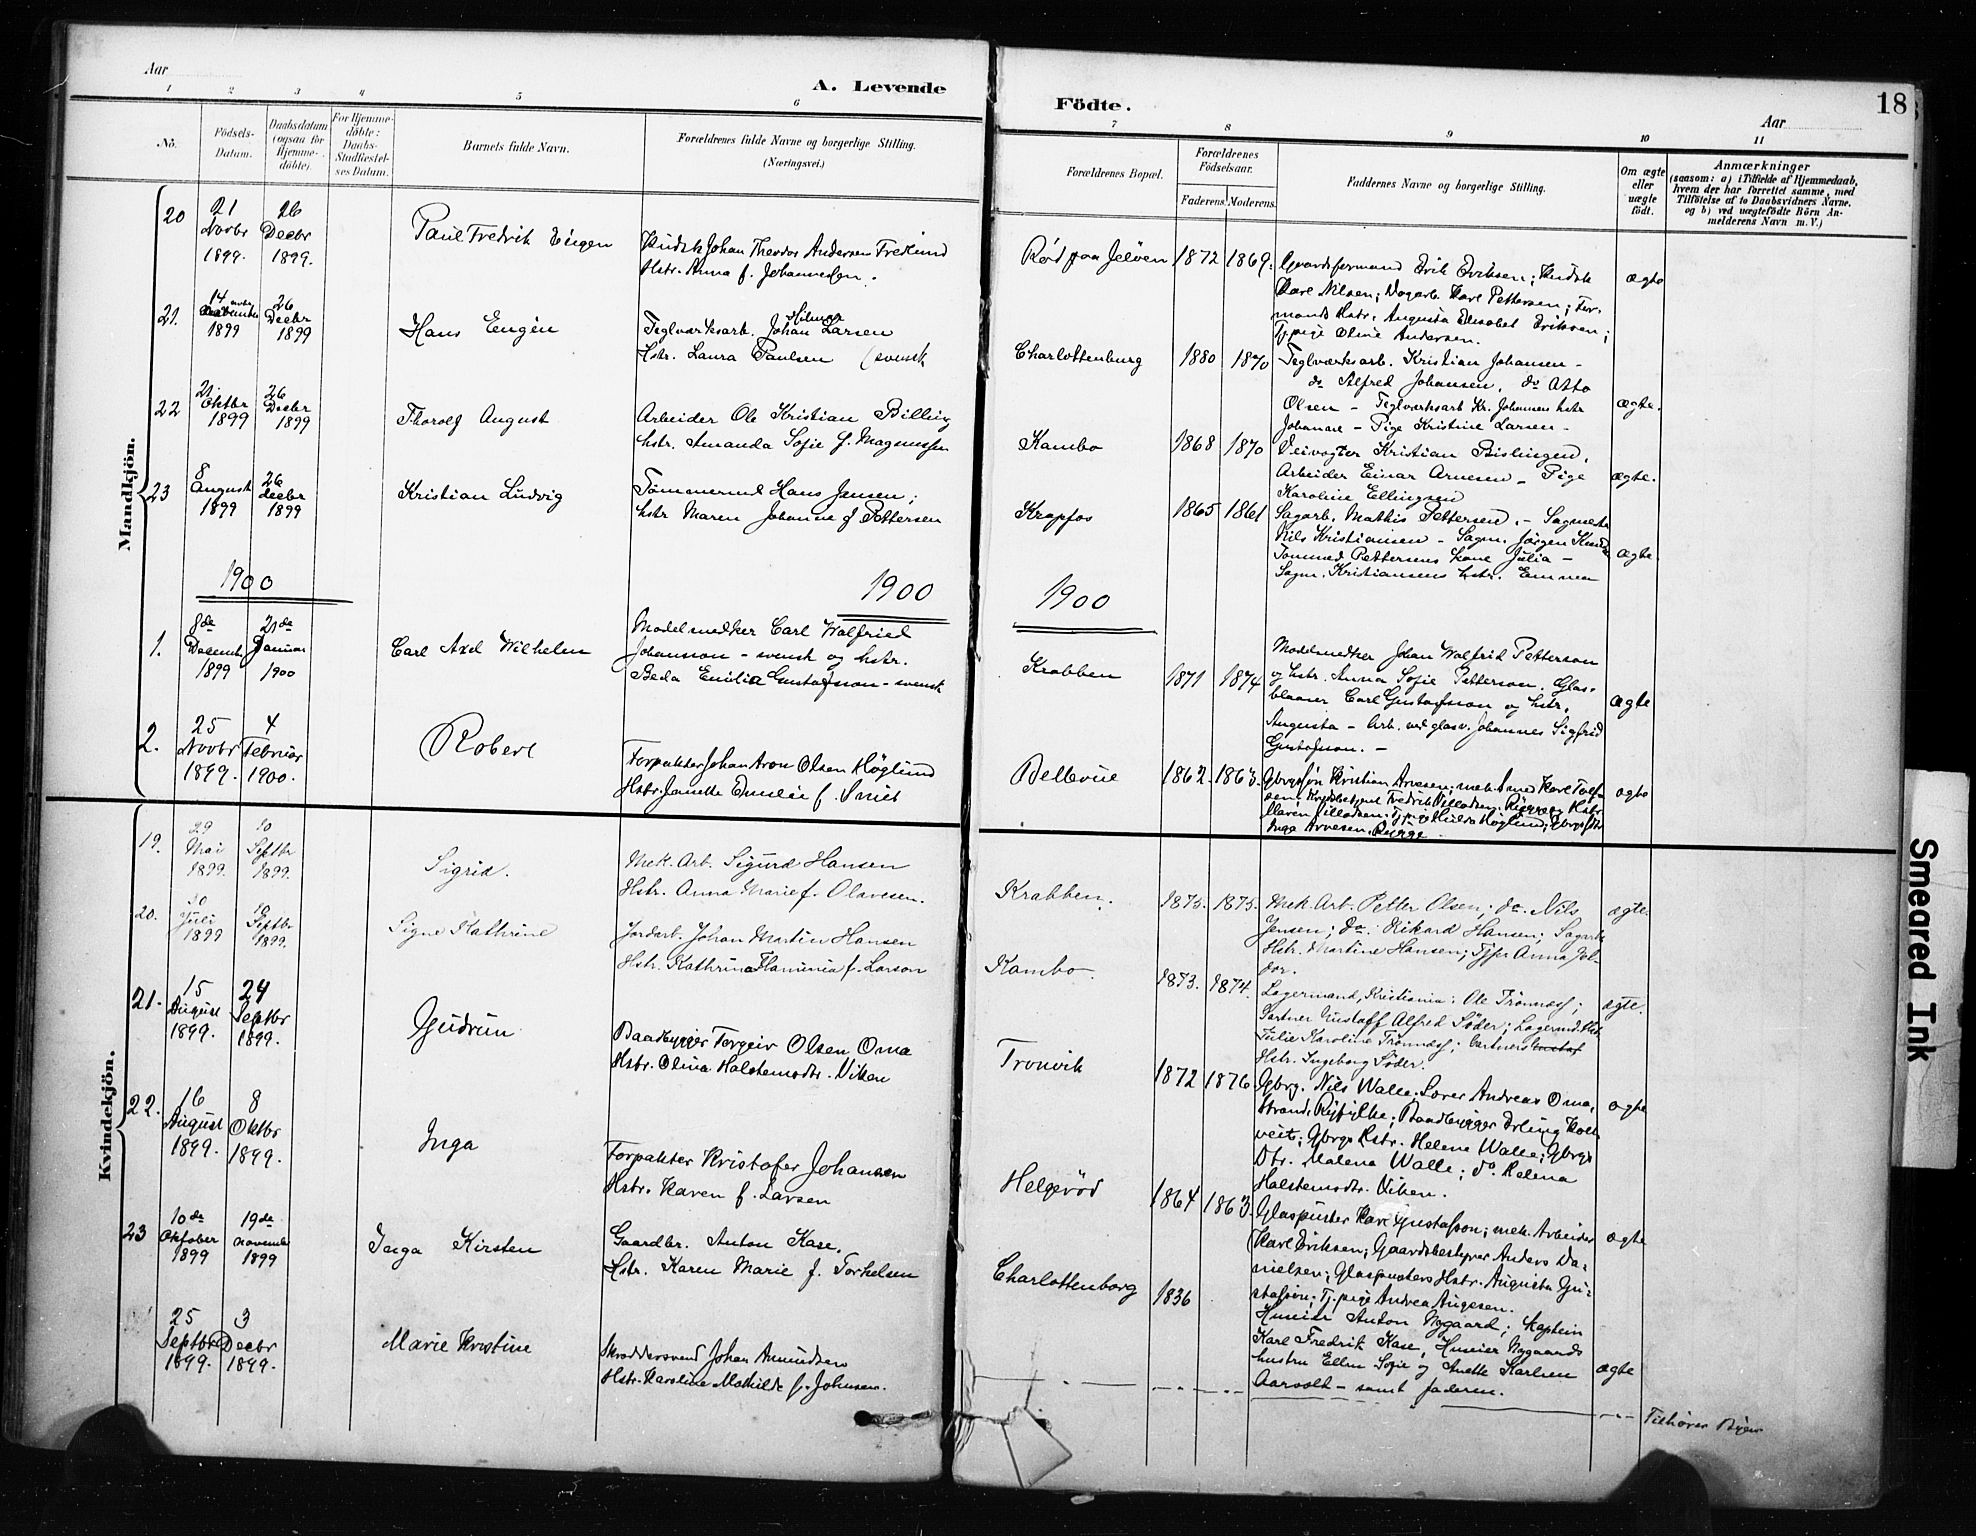 Aar
A. Levende
Födte.
Aar
18
1 2 3 4 5 6 7 8 9 10 11
No.
Födsels-
Datum.
Daabsdatum
(ogsaa for
Hjemme-
döbte).
For Hjemme-
döbte:
Daabs-
Stadfæstel-
ses Datum.
Barnets fulde Navn.
Forældrenes fulde Navne og borgerlige Stilling.
(Næringsvei.)
Forældrenes Bopæl.
Forældrenes
Födselsaar.
Faderens. Moderens.
Faddernes Navne og borgerlige Stilling.
Om ægte
eller
uægte
födt.
Anmærkninger
(saasom: a) i Tilfælde af Hjemmedaab,
hvem der har forrettet samme, med
Tilföielse af to Daabsvidners Navne,
og b) ved uægtefödte Börn An-
melderens Navn m. V.)
Mandkjön.
20
21 Novbr 1899.
26 Decbr 1899.
Paul Fredrik Eugen
Johan Theodor Andersen Fredlund
Hstr. Anna f. Johannesen.
Rød paa Jeløen
1872
1869.
Gaardsformand Erik Eriksen;
Karl Nilsen; Dagarb. Karl Pettersen; For-
mands Hstr. Augusta Elisabet Eriksen;
Tj.pige Oline Andersen.
ægte
21.
14 1899
26 Decbr 1899
Hans Eugen
Teglværksarb. Johan Hilmar Larsen
Hstr. Laura Paulsen (svensk
Charlottenburg
1880
1870
Teglværksarb. Kristian Johansen -
do Alfred Johansen, do Otto
Olsen - Teglværksarb Kr. Johansens hstr
Johanne - Pige Kristine Larsen -
ægte.
22
21 Oktbr 1899
26 Decbr 1899
Thorolf August
Arbeider Ole Kristian Billing
hstr. Amanda Sofie f. Magnussen
Kambo
1868
1870
Veivogter Kristian Bislingen,
Arbeider Einar Arnesen - Pige
Karoline Ellingsen
ægte.
23
8 August 1899
26 Decbr 1899
Kristian Ludvig
Tømmermd Hans Jensen;
hstr Maren Johanne f Pettersen
Krapfos
1865
1861
Sagarb. Mathis Pettersen. - Sagmester
Nils Kristiansen - Sagm. Jørgen
Tømmed Pettersens kone Julia -
Sagm. Kristiansens hstr. Emma
ægte.
1900
1900
1900
1.
8de Decembr 1899
21de Januar 1900
Carl Axel Wilhelm
Modelsnedker Carl Walfried
Johansson - svensk og hstr.
Beda Emilia Gustafsson - svensk
Krabben
1871
1874
Modelsnedker Johan Walfrid Petterson
og hstr. Anna Sofie Petterson. Glas-
blaaser Carl Gustafsson og hstr.
Augusta - Arb. ved glasv. Johannes Sigfrid
Gustafsson. -
ægte
2.
25 Novbr 1899.
4 Februar 1900.
Robert
Forpakter Johan Aron Olsen Höglund
Hstr. Janette Emelie f. Smit
Bellevue
1862.
1863.
Kristian Arvesen; Karl
Fredrik Villadsen, Rygge og Hstr.
Maren Villadsen; Tj.pige Hulda Höglund;
Inga Arvesen, Rygge
ægte
Kvindekjön.
19.
29 Mai 1899.
10 Septbr 1899.
Sigrid.
Mek. Arb. Sigurd Hansen
Hstr. Anna Marie f. Olavesen.
Krabben.
1873.
1873.
Mek. Art. Petter Olsen; do. Nils
Jensen; do. Rikard Hansen; Sagarb.
Hstr. Martine Hansen; Tjpi Anna
ægte
20.
30 Juli 1899
10 Septbr 1899.
Signe Kathrine
Jordarb. Johan Martin Hansen
Hstr. Kathrine Flaminia f. Larson
Kambo.
1873.
1874.
Lagermand, Kristiania: Ole Trönnes;
Gartner Gustaff Alfred Söder; Lagermd. Hstr.
Julie Karoline Trönnes; Gartners
Hstr. Ingeborg Söder.
ægte.
21.
15 August 1899.
24 Septbr 1899.
Gudrun
Baadbygger Torgeir Olsen Oma
Hstr. Olina Halstensdtr. Viken
Tronvik
1872
1876.
Gbrg. Nils Walle; Andreas Oma,
Strand, Ryfylke; Baadbygger Erling
Gbrgs Hstr. Helene Walle; Gbrgs
Dtr. Malena Walle; do. Helena
Halstensdtr. Viken.
ægte
22.
16 August 1899.
8 Oktbr 1899.
Inga
Forpakter Kristofer Johansen
Hstr. Karen f. Larsen
Helgerød
1864
1863.
Glaspuster Karl Gustafsson; mek. Arbeider
Karl Eriksen; Gaardsbestyrer Anders Da-
nielsen; Glaspusters Hstr. Augusta Gu-
stafsson; Tj.pige Andrea Aagesen.
ægte
23
10de Oktober 1899
19de November 1899
Inga Kirsten
Gaardbr. Anton Kase,
Hstr. Karen Marie f. Torkelsen
Charlottenborg
1836
Huseier Anton Nygaard; Kaptein
Karl Fredrik Kase, Huseier Nygaards
hustru Ellen Sofie og Anette Karlsen
Aarvolt - samt faderen.
ægte
25 Septbr 1899.
3 Decbr 1899.
Marie Kristine
Skræddersvend Johan Amundsen
Hstr. Karoline Mathilde f. Johnsen.
Tilhører Byen
Smeared Ink